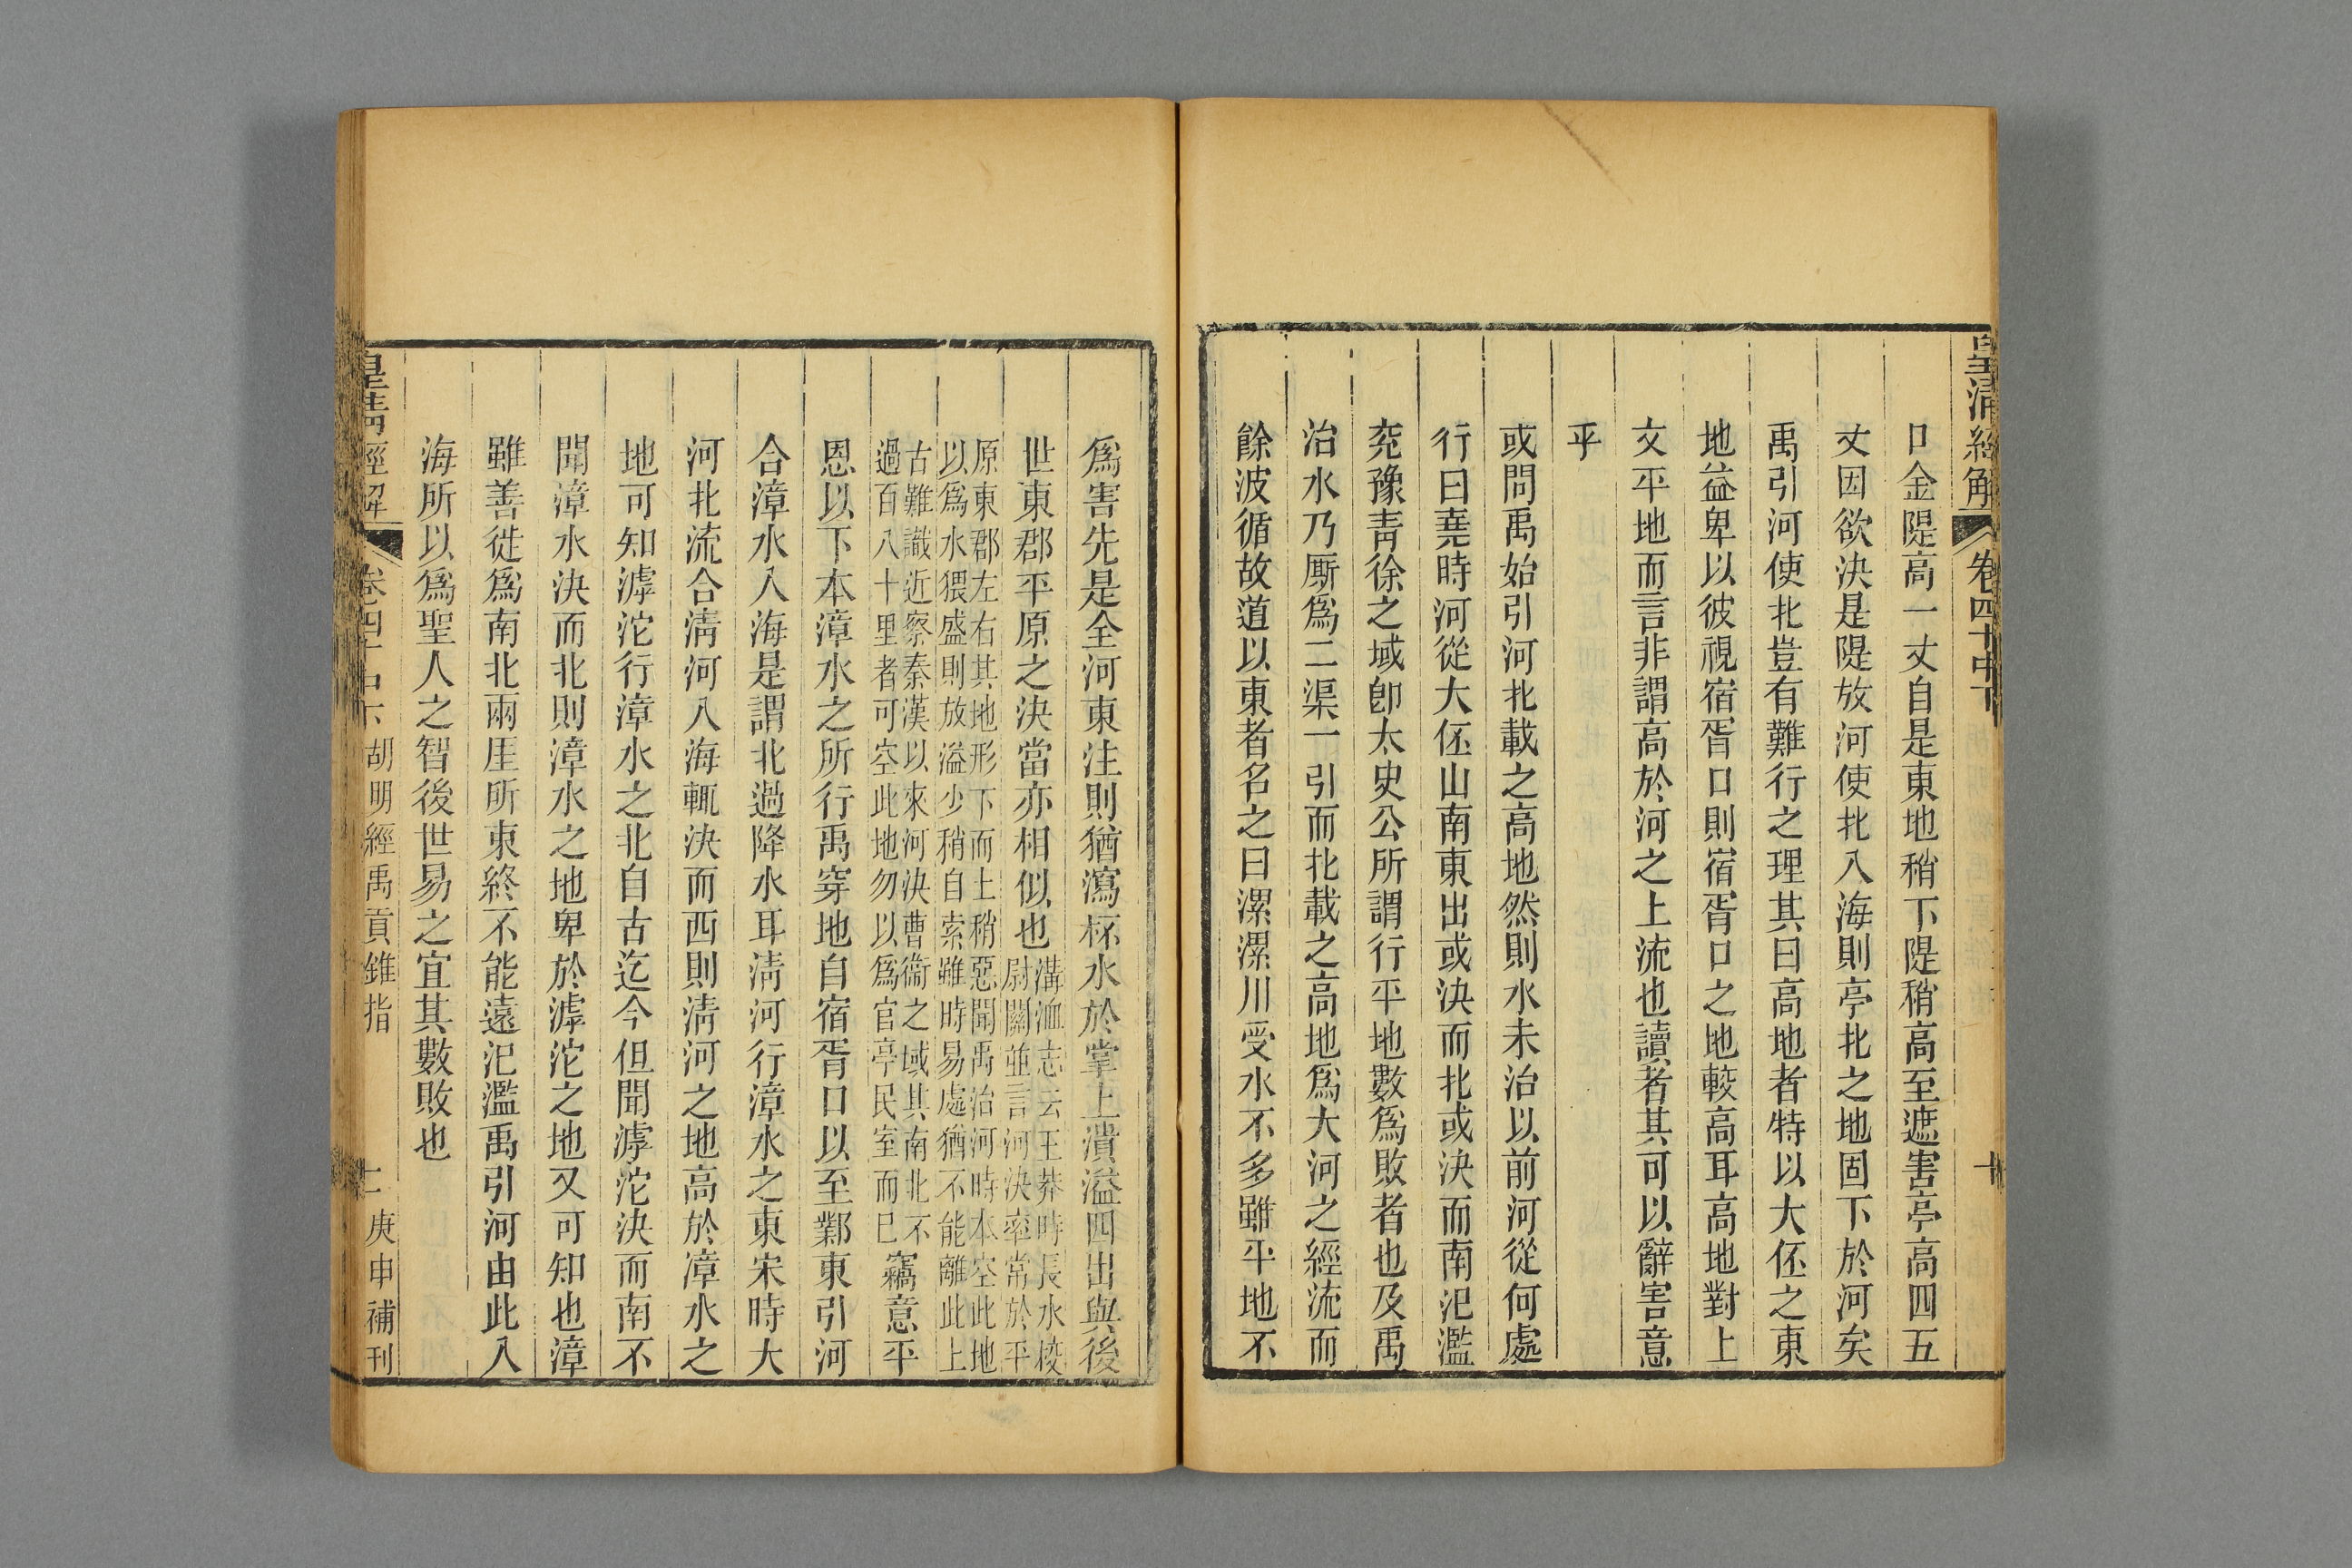 皇清經解 卷四十中下 十
口金隄高一丈自是東地稍下隄稍高至遮害亭高四五
丈因欲決是隄放河使北入海則亭北之地固下於河矣
禹引河使北豈有難行之理其曰高地者特以大伾之東
地益卑以彼視宿胥口則宿胥口之地較高耳高地對上
文平地而言非謂高於河之上流也讀者其可以辭害意
乎
或問禹始引河北載之高地然則水未治以前河從何處
行曰堯時河從大伾山南東出或決而北或決而南氾濫
兖豫靑徐之域卽太史公所謂行平地數爲敗者也及禹
治水乃厮爲二渠一引而北載之高地爲大河之經流而
餘波循故道以東者名之曰漯漯川受水不多雖平地不
爲害先是全河東注則猶瀉杯水於掌上潰溢四出與後
世東郡平原之決當亦相似也溝洫志云王莽時長水校
尉關並言河決率常於平
原東郡左右其地形下而土稍惡聞禹治河時本空此地
以爲水猥盛則放溢少稍自索雖時易處猶不能離此上
古難識近察秦漢以來河決曹衞之域其南北不
過百八十里者可空此地勿以爲官亭民室而已竊意平
恩以下本漳水之所行禹穿地自宿胥口以至鄴東引河
合漳水入海是謂北過降水耳淸河行漳水之東宋時大
河北流合淸河入海輒決而西則淸河之地高於漳水之
地可知滹沱行漳水之北自古迄今但聞滹沱決而南不
聞漳水決而北則漳水之地卑於滹沱之地又可知也漳
雖善徙爲南北兩厓所束終不能遠氾濫禹引河由此入
海所以爲聖人之智後世易之宜其數敗也
皇淸經解 卷四十中下 胡明經禹貢錐指 庚申補刊